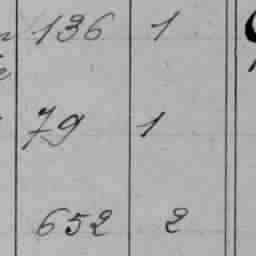 136 1
79 1
652 2